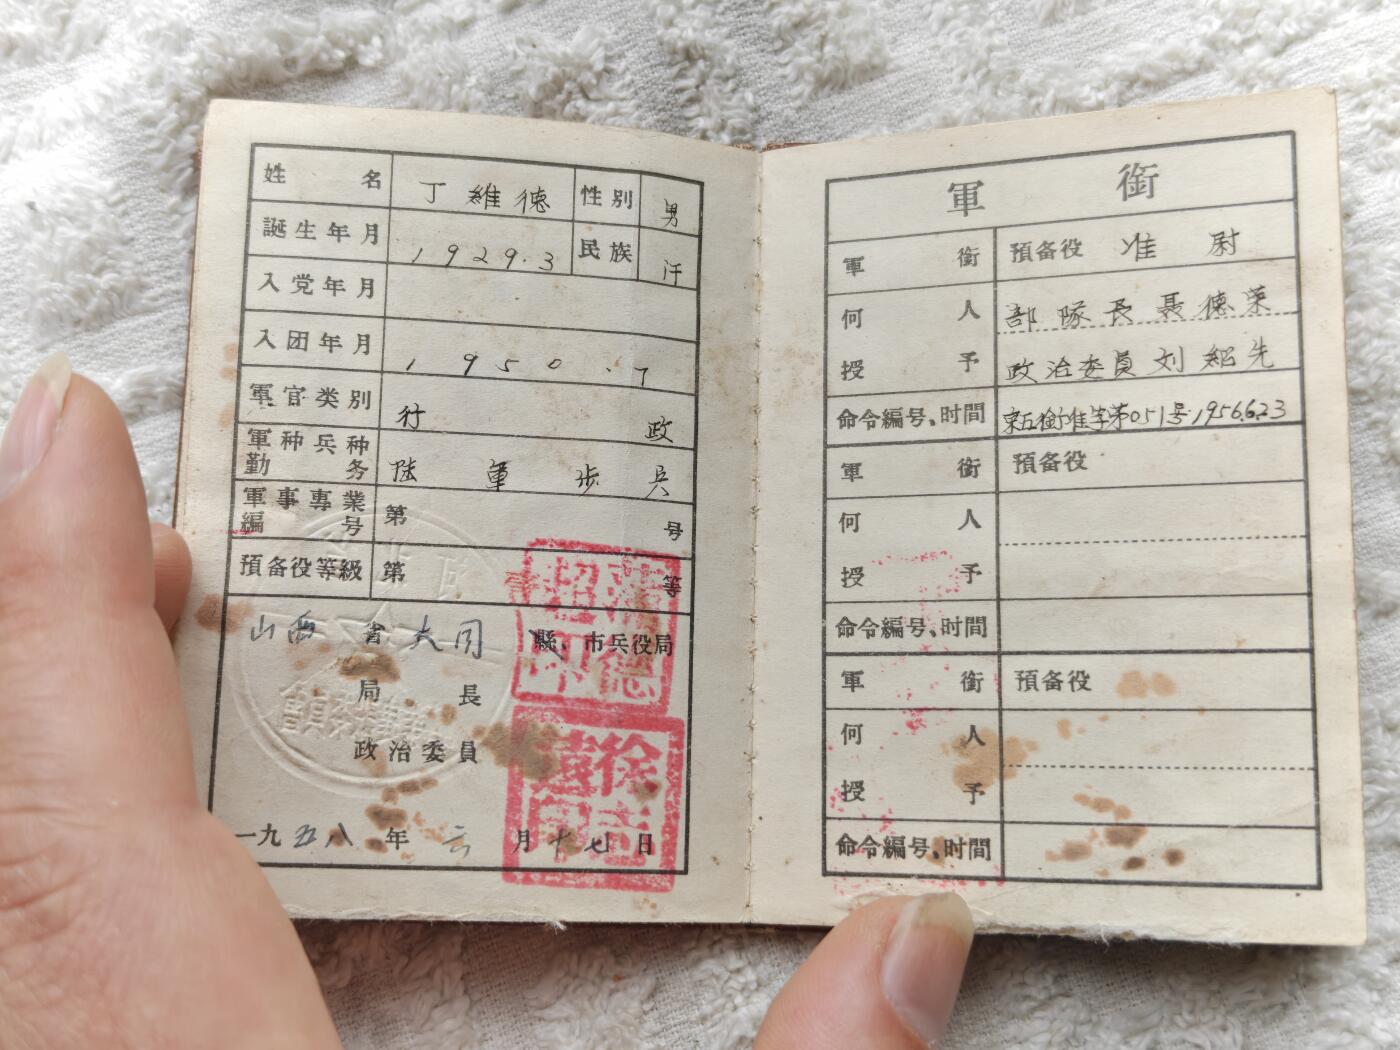 姓名 丁維德 性別 男
誕生年月 1929.3 民族 汗
入党年月
入团年月 1950.7
軍官类別 行政
軍种兵种勤务 陆軍步兵
軍事專業編号 第 号
預备役等級 第 等
山西省大同縣、市兵役局
局長
政治委員
一九五八年六月十七日
軍銜
軍銜 預备役 准尉
何人 部隊長聂德荣
授予 政治委員刘紹先
命令編号、时间 准字第051号.1956.6.23
軍銜 預备役
何人
授予
命令編号、时间
軍銜 預备役
何人
授予
命令編号、时间